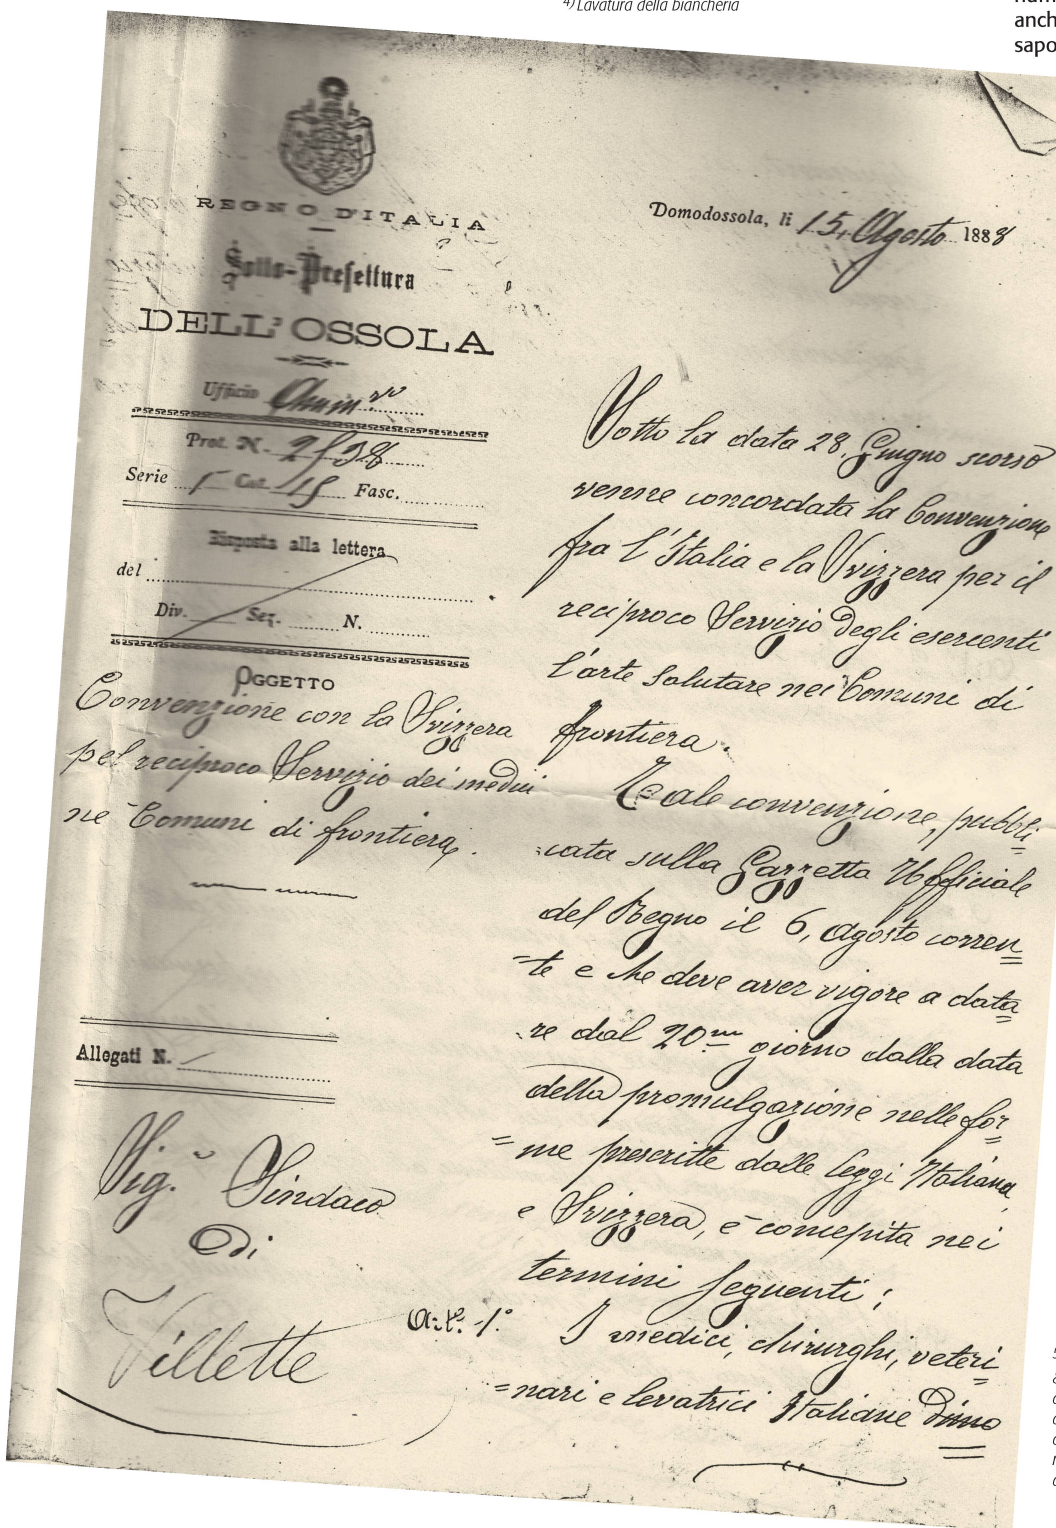 4) Lavatura della biancheria
anch
sapo
REGNO D'ITALIA
Sotto-Prefettura
DELL'OSSOLA
Ufficio Ammvo
Prot. N. 2538
Serie Cat. 15 Fasc.
Risposta alla lettera
del
Div. Sez. N.
OGGETTO
Convenzione con la Svizzera
pel reciproco Servizio dei medici
ne Comuni di frontiera.
Allegati N.
Sigr Sindaco
Di
Villette
Domodossola, li 15, Agosto 1888
Sotto la data 28, Giugno scorso
venne concordata la Convenzione
fra l'Italia e la Svizzera per il
reciproco Servizio degli esercenti
l'arte salutare nei Comuni di
frontiera.
Tale convenzione, pubbli=
=cata sulla Gazzetta Ufficiale
del Regno il 6, agosto corren=
=te e che deve aver vigore a data=
=re dal 20mo giorno dalla data
della promulgazione nelle for=
=me prescritte dalle leggi Italiana,
e Svizzera, è concepita nei
termini seguenti;
Art. 1° I medici, chirurghi, veteri=
=nari e levatrici Italiane